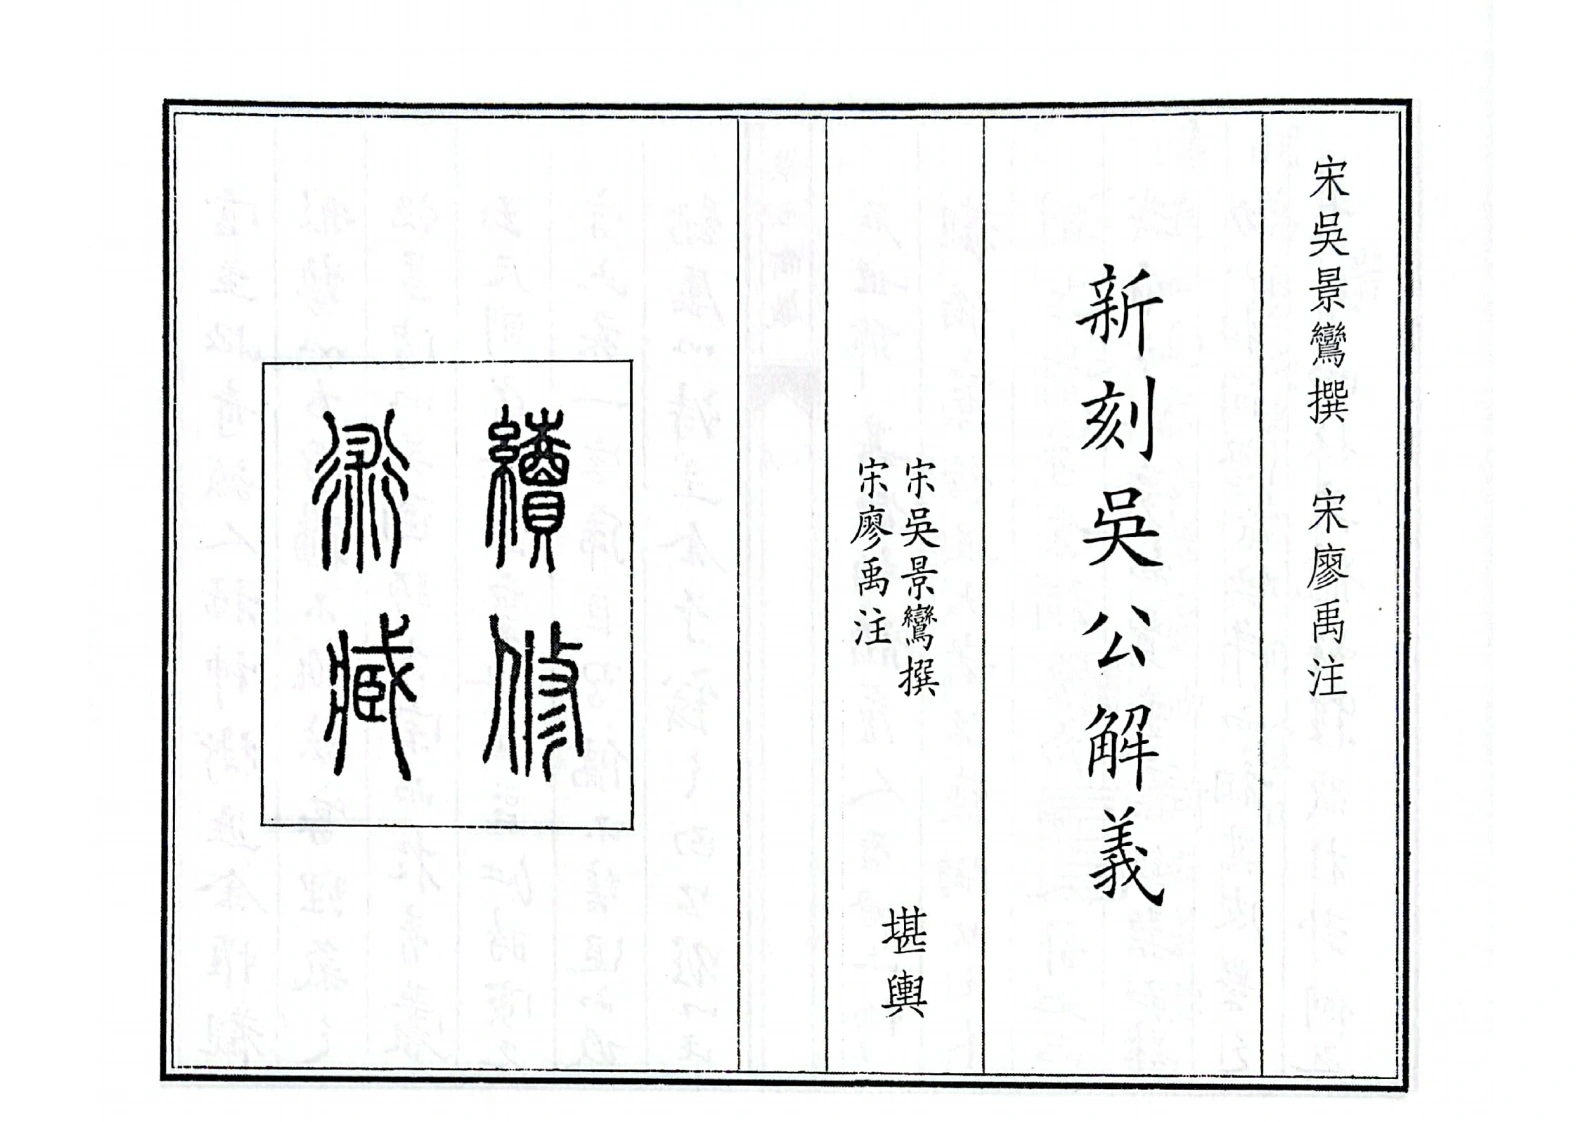 宋吳景鸞撰　宋廖禹注
新刻吳公解義
宋吳景鸞撰
宋廖禹注
堪輿
續修
術藏